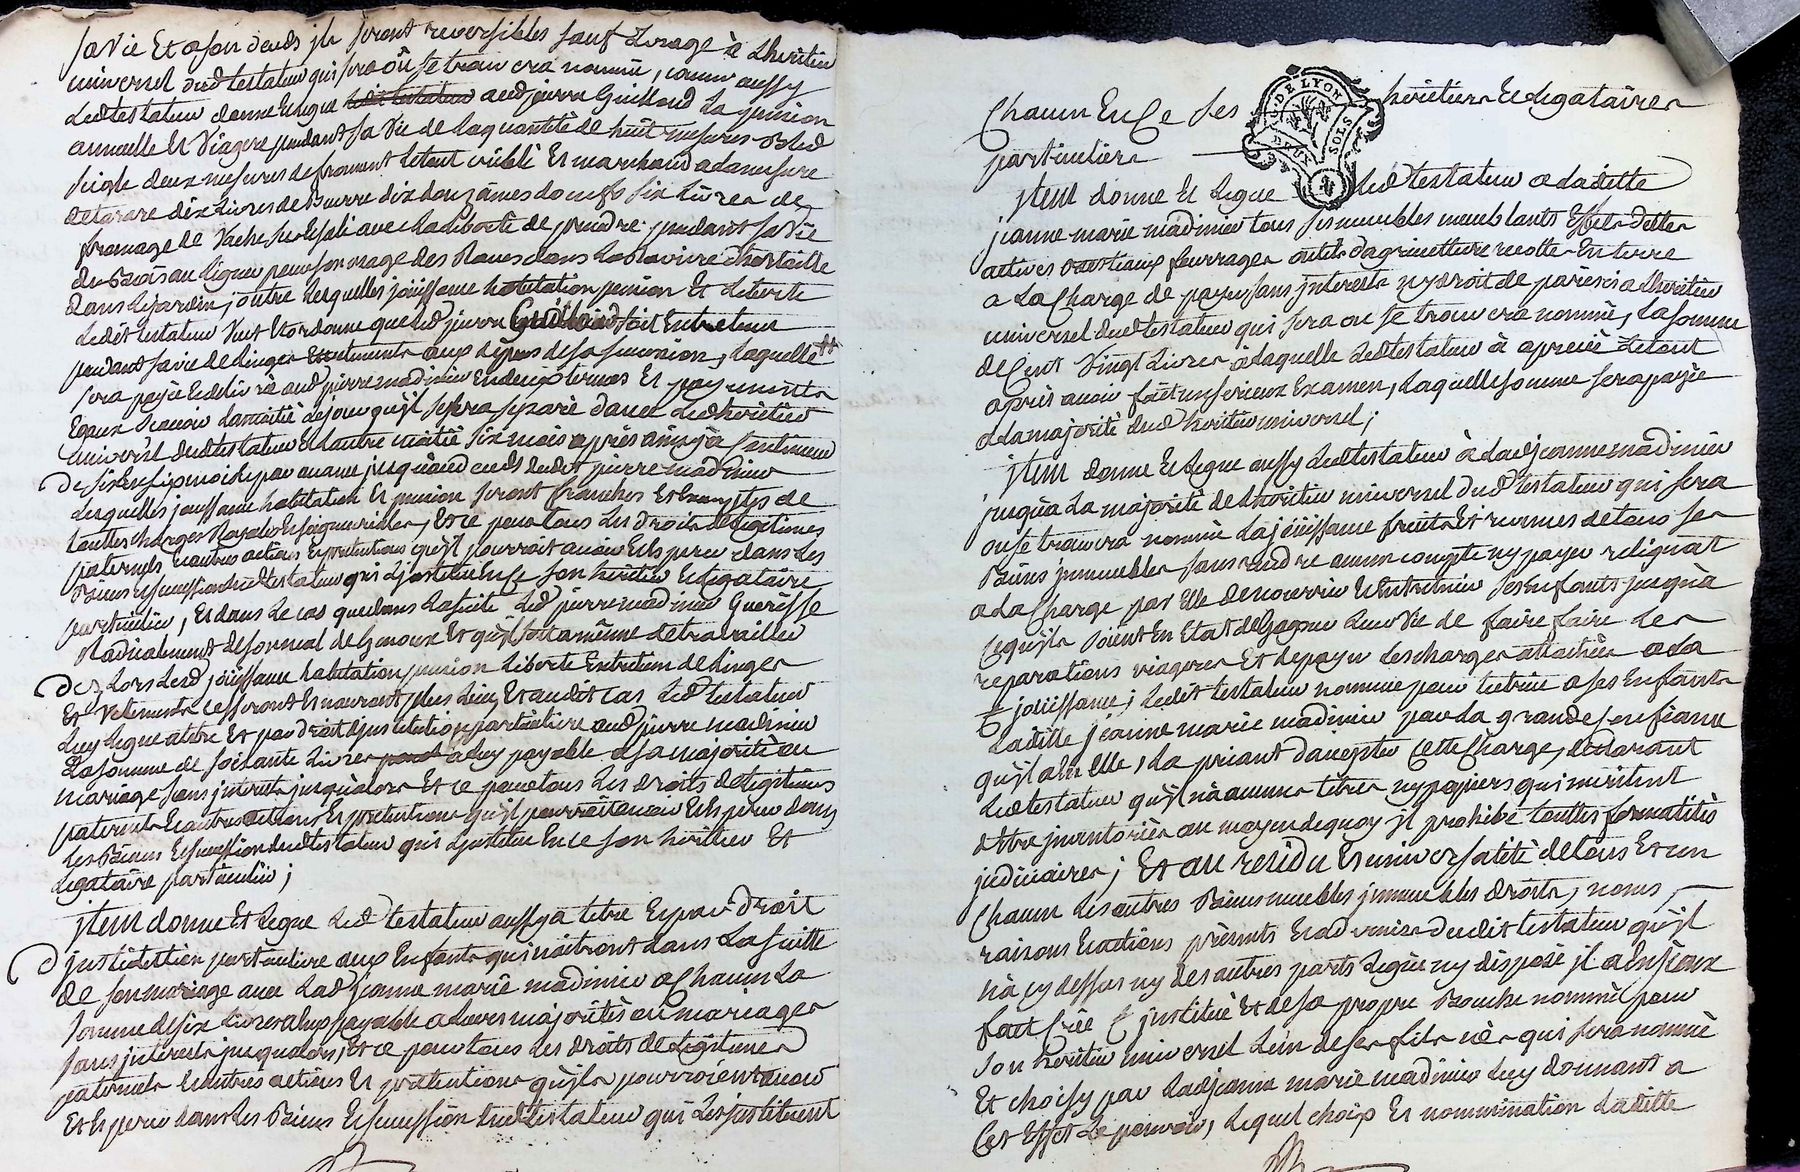 sa vie Et a son deceds jls seront reversibles sauf Lusage à Lheritier
universel dud testateur qui sera où se trouvera nommé, comme aussy
Led testateur donne Et legue aud pierre la pension
annuelle Et Viagere pendant sa vie de la quantité de huit mesures Bled
seigle deux mesures de froment Le tout criblé Et marchand a la mesure
de tarare dix Livres de Beurre dix douzaines doeufs six Livres de
fromage de Vache avec La liberté de prendre pendant sa vie
du Bois au ligner pour son usage des Raves dans La Raviere
dans Le jardin, outre Lesquelles joüissance habitation pension Et Liberté
Ledit testateur Veut Et ordonne que Led pierre soit Entretenu
pendant sa vie de Linges Et vetements aux depens de sa pension, Laquelle
sera payée Et delivrée aud pierre madinier En deux termes Et payements
Egaux scavoir La moitié Le jour qu'jl se sera separé davec Led heritier
universel dud testateur Et Lautre moitié six mois après ainsy a Continuer
De six En six mois par avance jusqu'aud deceds dudit pierre madinier
Lesquelles jouissance habitation Et pension seront franches Et Exemptes de
touttes charges Royales Et seigneurialles, Et ce pour tous Les Droits de Legitimes
paternels Et autres actions Et pretentions qu'jl pourroit avoir Et Esperer dans Les
Biens Et succession dud testateur qui L'jnstitue En ce son heritier Et legataire
particulier, Et dans Le cas que dans La suite Led pierre madinier Guerisse
Radicalement de son mal de Genoux Et qu'jl soit a même de travailler
Dez Lors Lesd joüissance habitation pension Liberté Entretien de Linges
Et Vetements cesseront Et n'auront plus Lieu, Et audit cas Led testateur
Luy Legue a titre Et par droit d'jnstitution particuliere aud pierre madinier
La somme de soixante Livres a luy payable a sa majorité ou
mariage sans jnterets jusqu'alors Et ce pour tous Les droits de Legitimes
paternels Et autres actions Et pretentions qu'jl pourroit avoir Et Esperer dans
Les Biens Et succession dud testateur qui L'jnstitue En ce son heritier Et
Legataire particulier;
jtem donne Et Legue Led testateur aussy a titre Et par Droit
D'jnstitution particuliere aux Enfants qui naitront dans La suitte
de son mariage avec Lad jeanne marie madinier a Chacun La
somme de six Livres a Eux payable a Leurs majorités ou mariages
sans jnterests jusqualors, Et ce pour tous Les droits de Legitimes
paternels Et autres actions Et pretentions qu'jls pourroient avoir
Et Esperer dans Les Biens Et succession dud testateur qui Les jnstituent
Chacun En Ce Ses heritiers Et Legataires
G. DE LYON
DEUX SOLS
particuliers
jtem donne Et Legue Led testateur a Ladite
jeanne marie madinier tous ses meubles meublants Effets Dettes
actives Bestiaux fourrages outils dagriculture recolte En terre
a La Charge de payer sans jnterets ny droit de parisis a Lheritier
universel dud testateur qui sera ou se trouvera nommé, La somme
de Cent Vingt Livres à Laquelle Led testateur à aprecié Le tout
après avoir fait un serieux Examen, Laquelle somme sera payée
a La majorité dud heritier universel;
jtem donne Et Legue aussy Led testateur à Lad jeanne madinier
jusqu'à La majorité de Lheritier universel Dud testateur qui sera
ou se trouvera nommé La joüissance fruits Et revenus de tous ses
Biens jmmeubles sans rendre aucun compte ny payer reliquat
a La Charge par Elle de nourrir Et Entretenir ses Enfants jusqu'à
ce qu'jls soient En Etat de Gagner Leur Vie de faire faire Les
reparations viageres Et de payer Les charges attachées a La
joüissance; Ledit testateur nomme pour tutrice a ses Enfants
Laditte jeanne marie madinier par La grande Confiance
qu'jl a En Elle, La priant d'accepter cette Charge, declarant
Led testateur qu'jl n'à aucuns titres ny papiers qui meritent
d'être jnventoriés au moyen de quoy jl prohibe touttes formalités
judiciaires; Et au residu Et universalité de tous Et un
Chacun Les autres Biens meubles jmmeubles droits, noms,
raisons Et actions présents Et advenirs dudit testateur qu'jl
n'à cy dessus ny des autres parts Legué ny disposé jl a En jceux
fait Créé Et jnstitué Et de sa propre Bouche nommé pour
son heritier universel L'un de ses fils nés qui sera nommé
Et choisy par Lad jeanne marie madinier Luy donnant a
Cet Effet Le pouvoir, Lequel choix Et nommination Laditte